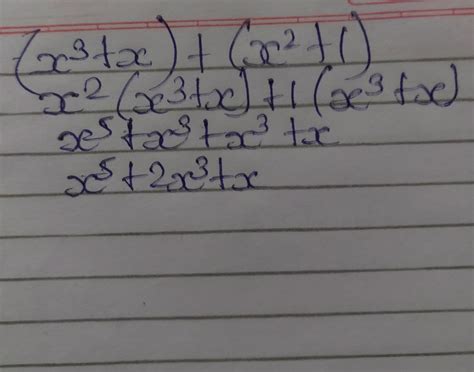 (x³+x)+(x²+1)
x²(x³+x)+1(x³+x)
x⁵+x³+x³+x
x⁵+2x³+x